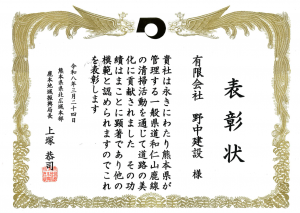 表彰状
有限会社 野中建設 様
貴社は永きにわたり熊本県が
管理する一般県道和仁山鹿線
の清掃活動を通じて道路の美
化に貢献されました その功
績はまことに顕著であり他の
模範と認められますのでこれ
を表彰します
令和八年三月二十四日
熊本県県北広域本部
鹿本地域振興局長
上塚恭司